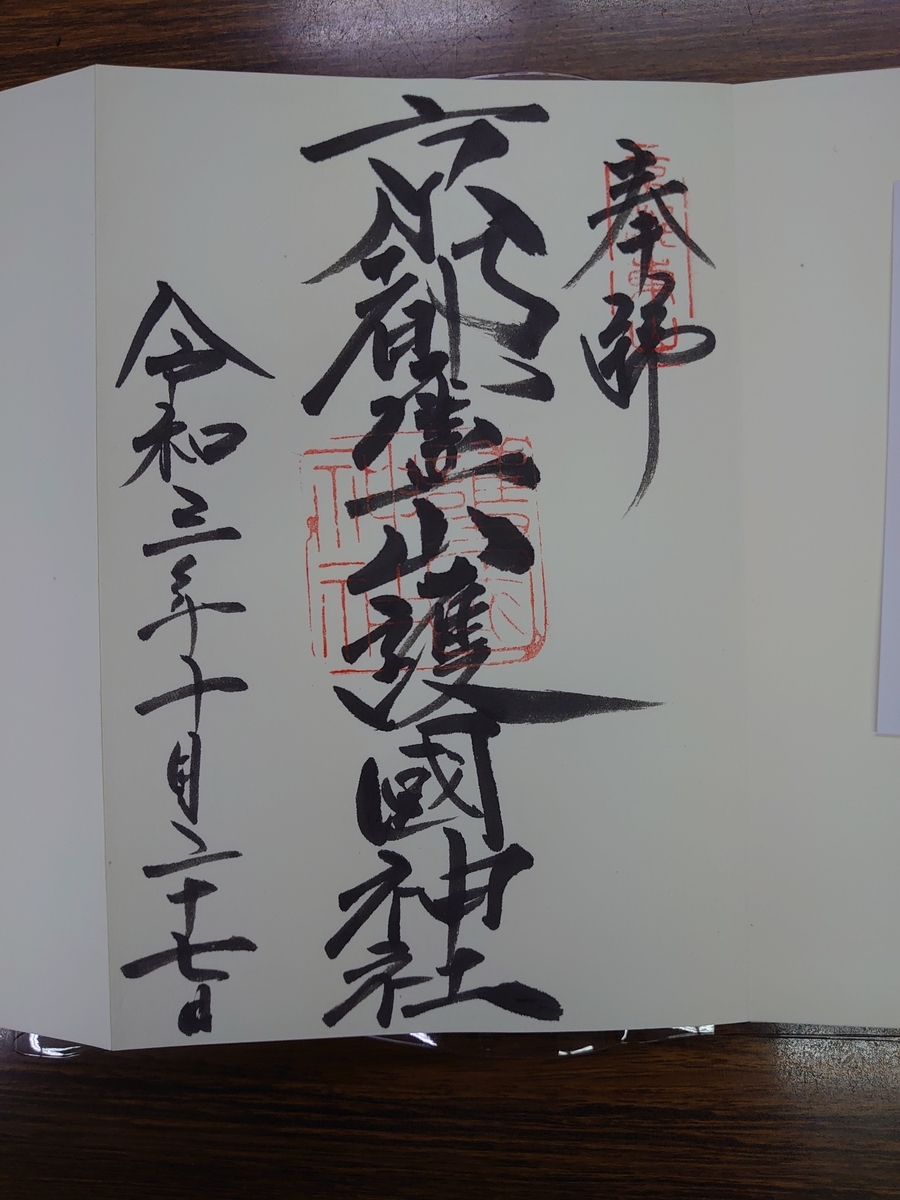 奉拝
京都霊山護國神社
令和三年十月二十七日